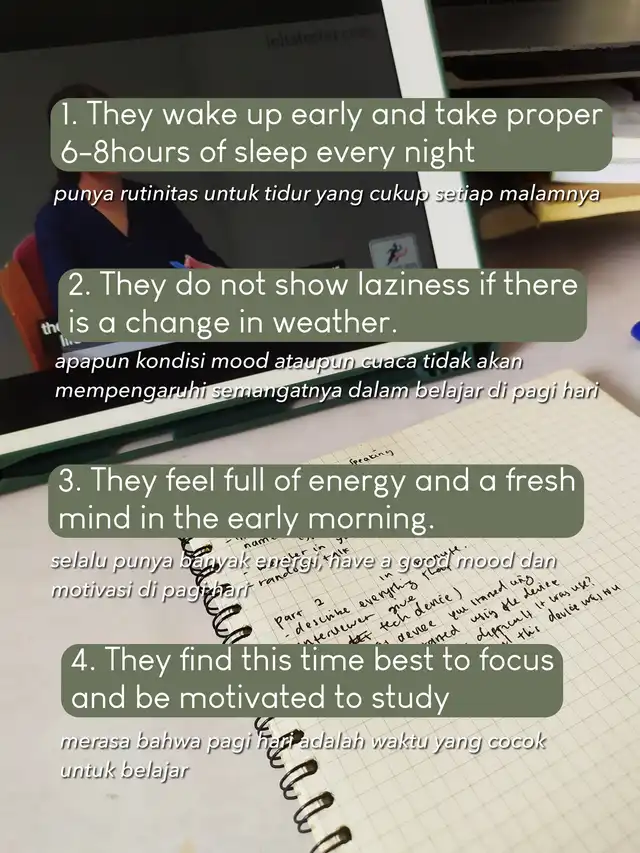 ieltstutor.com
1. They wake up early and take proper
6-8hours of sleep every night
punya rutinitas untuk tidur yang cukup setiap malamnya
2. They do not show laziness if there
is a change in weather.
apapun kondisi mood ataupun cuaca tidak akan
mempengaruhi semangatnya dalam belajar di pagi hari
speaking
3. They feel full of energy and a fresh
mind in the early morning.
selalu punya banyak energi, have a good mood dan
motivasi di pagi hari
part 2
- describe everything
interviewer give
tech device)
device you started using
the device
difficult it was use?
this device
4. They find this time best to focus
and be motivated to study
merasa bahwa pagi hari adalah waktu yang cocok
untuk belajar